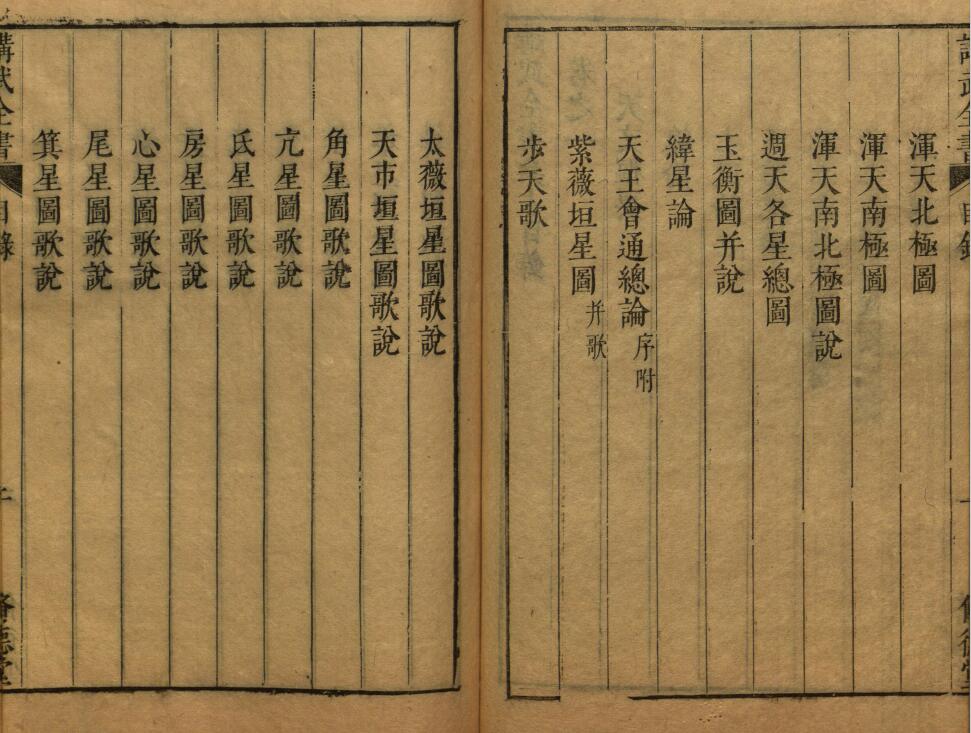 渾天北極圖
渾天南極圖
渾天南北極圖說
週天各星總圖
玉衡圖并說
緯星論
天王會通總論 序附
紫薇垣星圖 并歌
步天歌
太薇垣星圖歌說
天市垣星圖歌說
角星圖歌說
亢星圖歌說
氐星圖歌說
房星圖歌說
心星圖歌說
尾星圖歌說
箕星圖歌說
講武全書 目錄